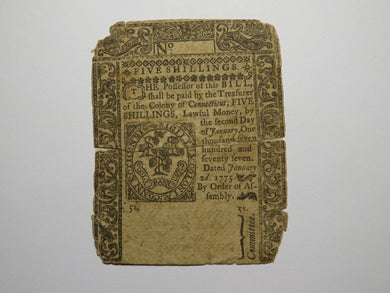 No
FIVE SHILLINGS.
THE Possessor of this BILL,
shall be paid by the Treasurer
of the Colony of Connecticut, FIVE
SHILLINGS, Lawful Money, by
the second Day
of January, One
thousand seven
hundred and
seventy seven.
Dated January
2d. 1775.
By Order of Af-
sembly.
5s.
5s.
Committee.